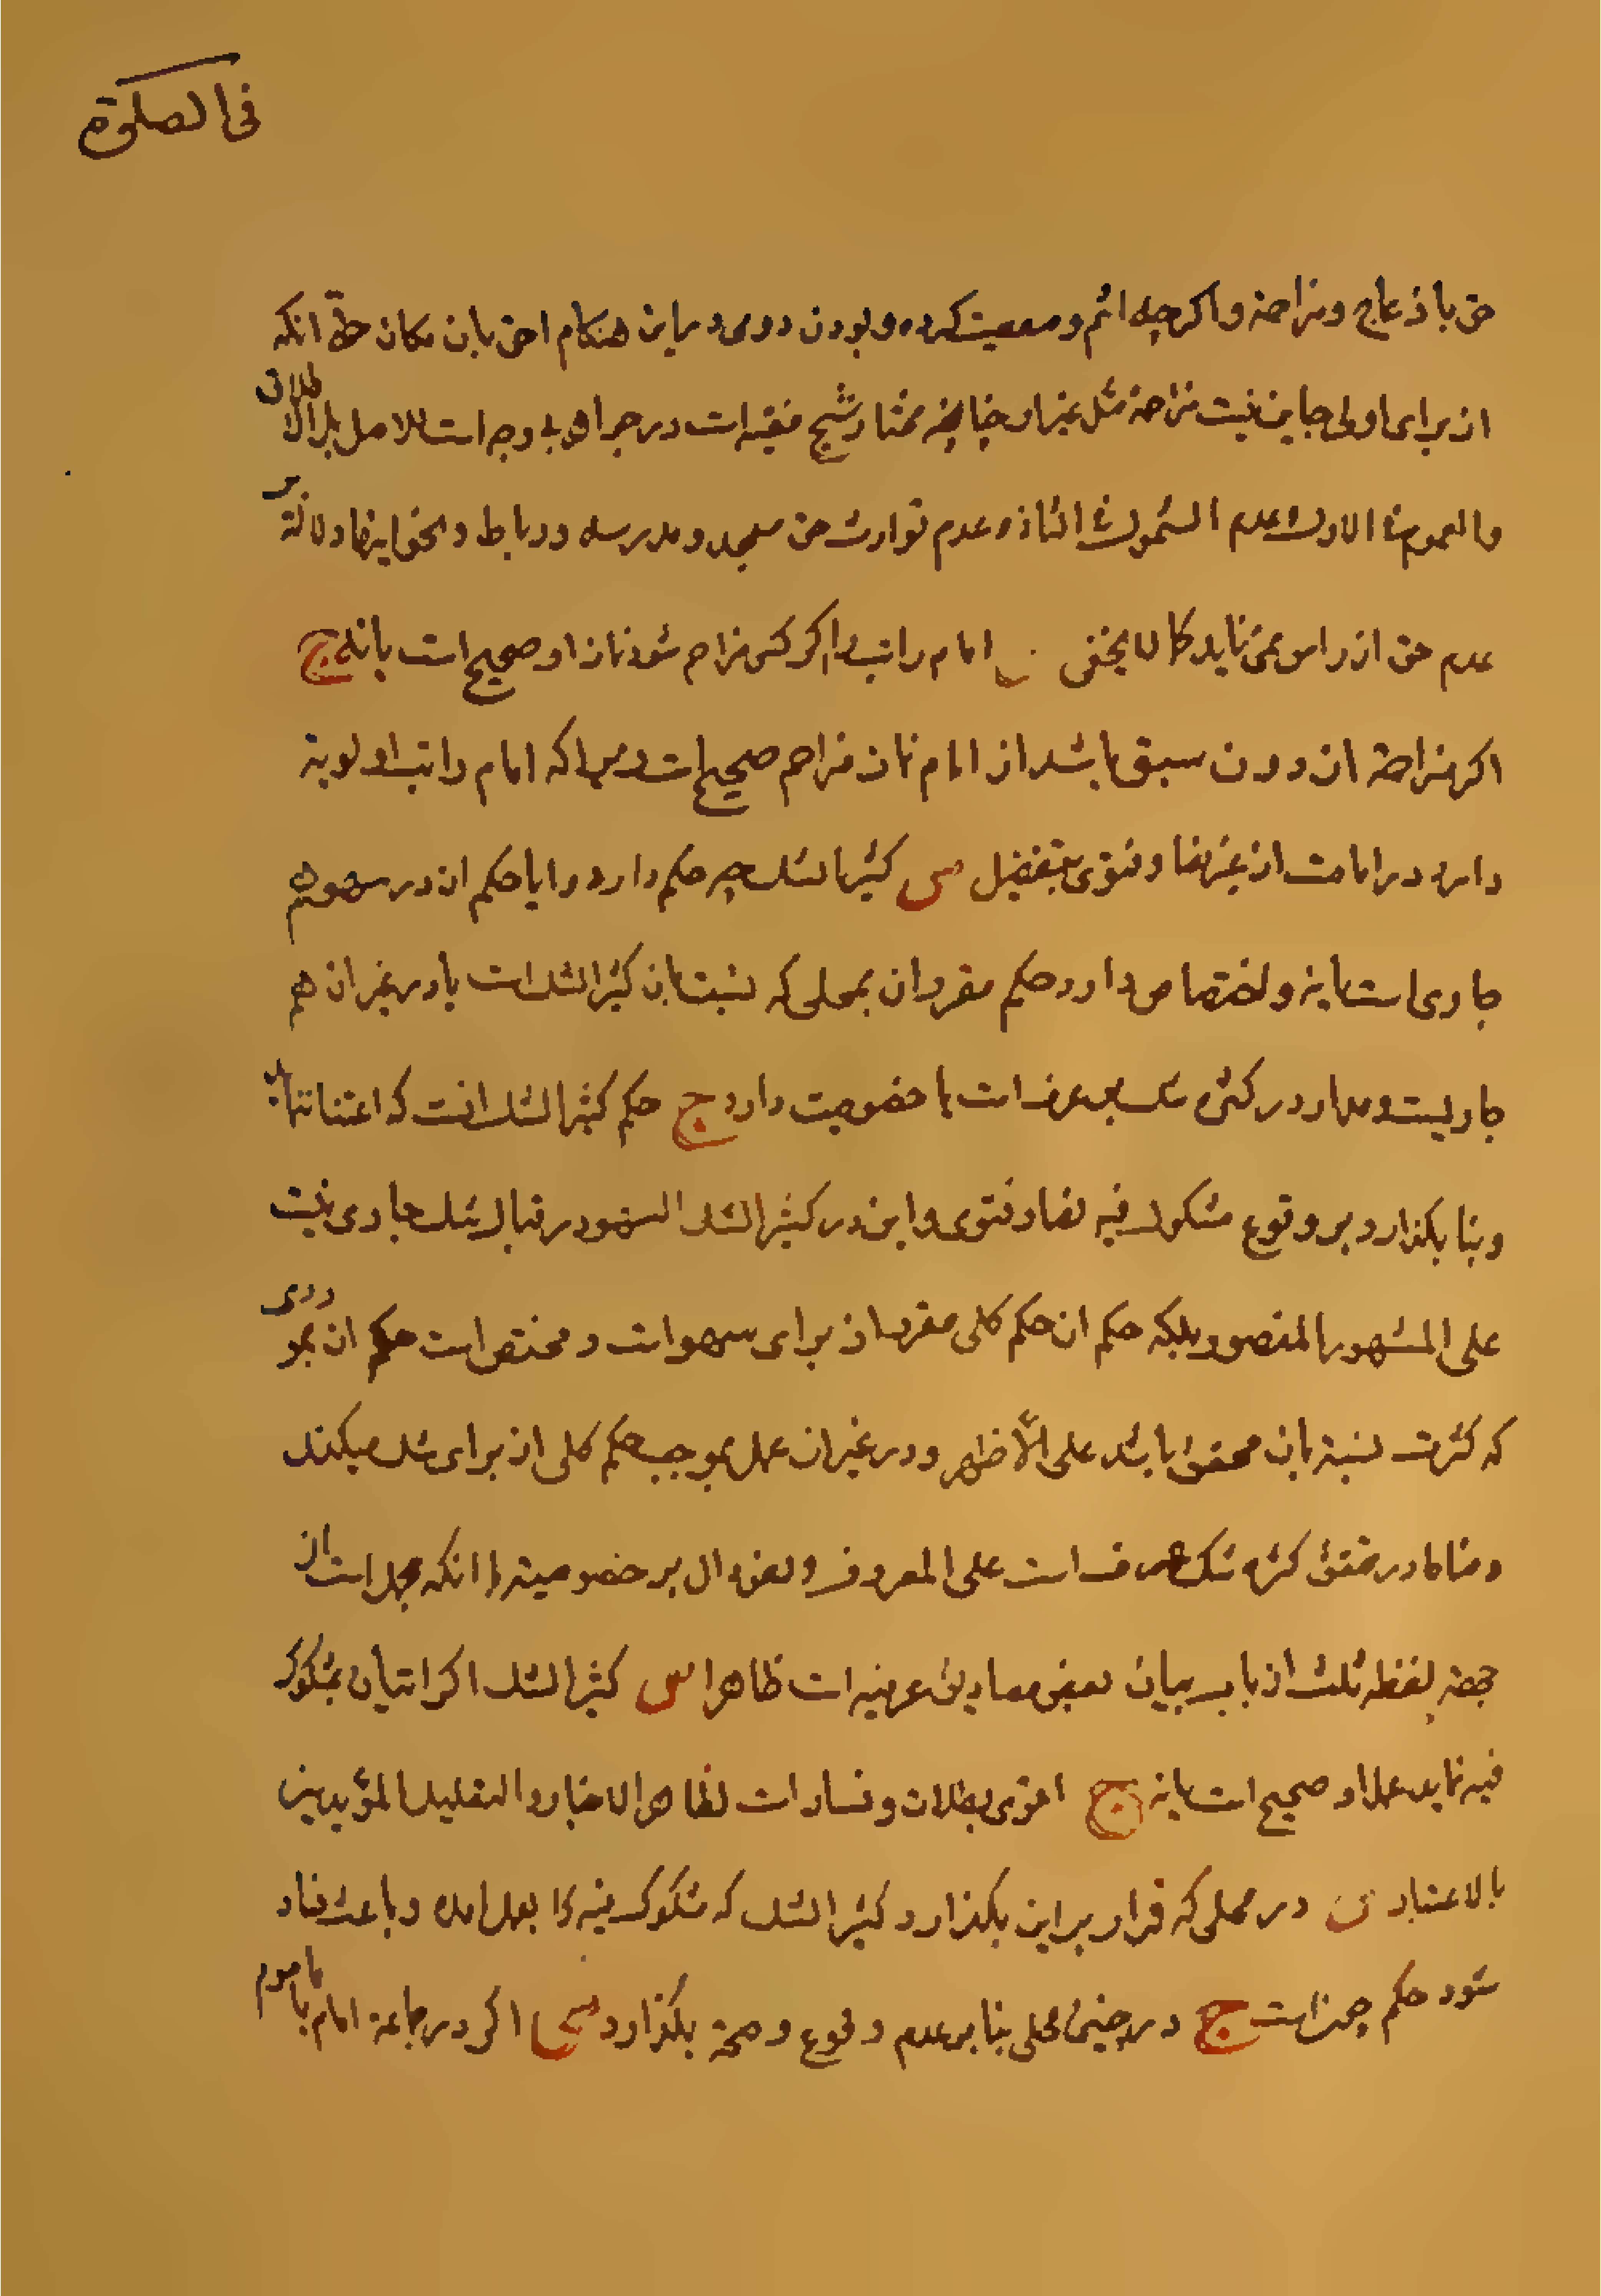 فی الصلوة
حق با ذعاج ومزاحمة واکرچه اثم ومعصیت کرده و بودن دوی در این هنکام احق بان مکان حتّی انکه
از برای اولی جایز نیست مزاحمة مثل غیر او چنانچه مختار شیخ فقیه است در جواهر بی وجه است للاصل بل الاطلاق
والعموم فی الاول وعدم الشمول فی الثانی وعدم توارث حق مسجد و مدرسه و رباط و نحو ایضا دلالة بر
عدم حق از راس نمی نماید کما لا یخفی س امام راتب را اکر کسی مزاحم شود نماز او صحیح است یا نه ج
اکر مزاحمة ان دون سبق باشد از امام نماز مزاحم صحیح است چراکه امام راتب اولویة
دارد در امامت از غیر نصا وفتوی بتفضیل س کثیر الشک چه حکم دارد وایا حکم ان در سهو هم
جاری است یا نه واختصاص دارد حکم مقرر ان بمحلی که نسبت بان کثیر الشک است یا در غیر ان هم
جاریست ومدار در کثرة شک بر عرف است یا خصوصیت دارد ج حکم کثیر الشک انست که اعتنا ننماید
وبنا بکذارد بر وقوع مشکوک فیه نصا وفتوی واین در کثیر الشک السهو در قبال شک جاری نیست
علی المشهور المنصور بلکه حکم ان حکم کلی مقرر از برای سهو است ومختص است حکم ان بموردی
که کثرت نسبة بان محقق باشد علی الأظهر ودر غیر ان عمل بموجب حکم کلی از برای شک میکند
ومناط در تحقق کثرة شک عرف است علی المعروف ونص دال بر خصوصیة با انکه مجمل است از
جهة لفظه ثلث از باب بیان بعض مصادیق عرفیه است ظاهرا س کثیر الشک اکر اتیان بمشکوک
فیه نماید عملا او صحیح است یا نه ج اقوی بطلان وفساد است لظاهر الاخبار والتعلیل المؤیدین
بالاعتبار س در محلی که قرار بر این بکذارد کثیر الشک که مشکوک فیه را بعمل امده وباعث فساد
شود حکم چیست ج در چنین محلی بنا بر عدم وقوع وصحة بکذارد س اکر در جماعة امام یا ماموم